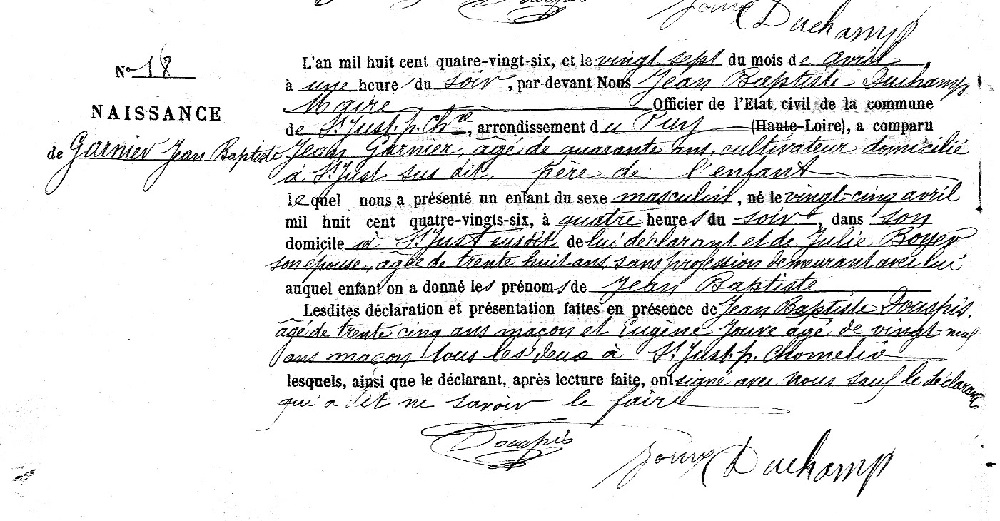 Jouve Duchamp
L'an mil huit cent quatre-vingt-six, et le vingt sept du mois de avril
N° 18
à une heure du soir, par-devant Nous Jean Baptiste Duchamp
Maire Officier de l'Etat civil de la commune
NAISSANCE
de St Just. p. Ch., arrondissement du Puy (Haute-Loire), a comparu
de Garnier Jean Baptiste
Jean Garnier, agé de quarante ans, cultivateur domicilié
à St Just sus dit, père de l'enfant
lequel nous a présenté un enfant du sexe masculin, né le vingt-cinq avril
mil huit cent quatre-vingts-six, à quatre heures du soir, dans son
domicile à St Just susdit de lui déclarant et de Julie Boyer
son épouse, agée de trente huit ans, sans profession demeurant avec lui
auquel enfant on a donné les prénoms de Jean Baptiste
Lesdites déclaration et présentation faites en présence de Jean Baptiste Douspis,
agé de trente cinq ans maçon et Eugène Jouve agé de vingt neuf
ans maçon, tous les deux à St Just. p. Chomelix
lesquels, ainsi que le déclarant, après lecture faite, ont signé avec nous sauf le déclarant
qui a dit ne savoir le faire
Douspis Jouve Duchamp